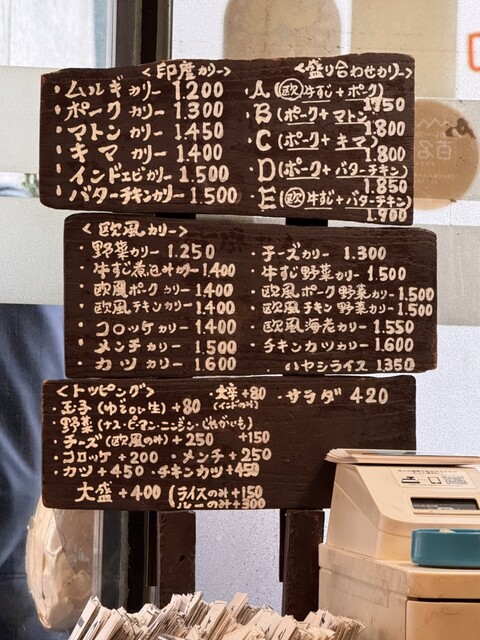 ＜印度カリー＞
・ムルギカリー 1.200
・ポークカリー 1.300
・マトンカリー 1.450
・キマカリー 1.400
・インドエビカリー 1.500
・バターチキンカリー 1.500
＜盛り合わせカリー＞
・A(欧 牛すじ+ポーク) 1750
・B(ポーク+マトン) 1.800
・C(ポーク+キマ) 1.800
・D(ポーク+バターチキン) 1.850
・E(欧 牛すじ+バターチキン) 1.900
＜欧風カリー＞
・野菜カリー 1.250
・牛すじ煮込みカリー 1.400
・欧風ポークカリー 1.400
・欧風チキンカリー 1.400
・コロッケカリー 1.400
・メンチカリー 1.500
・カツカリー 1.600
・チーズカリー 1.300
・牛すじ野菜カリー 1.500
・欧風ポーク野菜カリー 1.500
・欧風チキン野菜カリー 1.500
・欧風海老カリー 1.550
・チキンカツカリー 1.600
・ハヤシライス 1350
＜トッピング＞
・大辛+80
(インドのみ)
・サラダ 420
・玉子(ゆでor生)+80
・野菜(ナス・ピーマン・ニンジン・じゃがいも)
+150
・チーズ(欧風のみ)+250
・コロッケ+200 ・メンチ+250
・カツ+450 ・チキンカツ+450
大盛+400(ライスのみ+150
ルーのみ+300